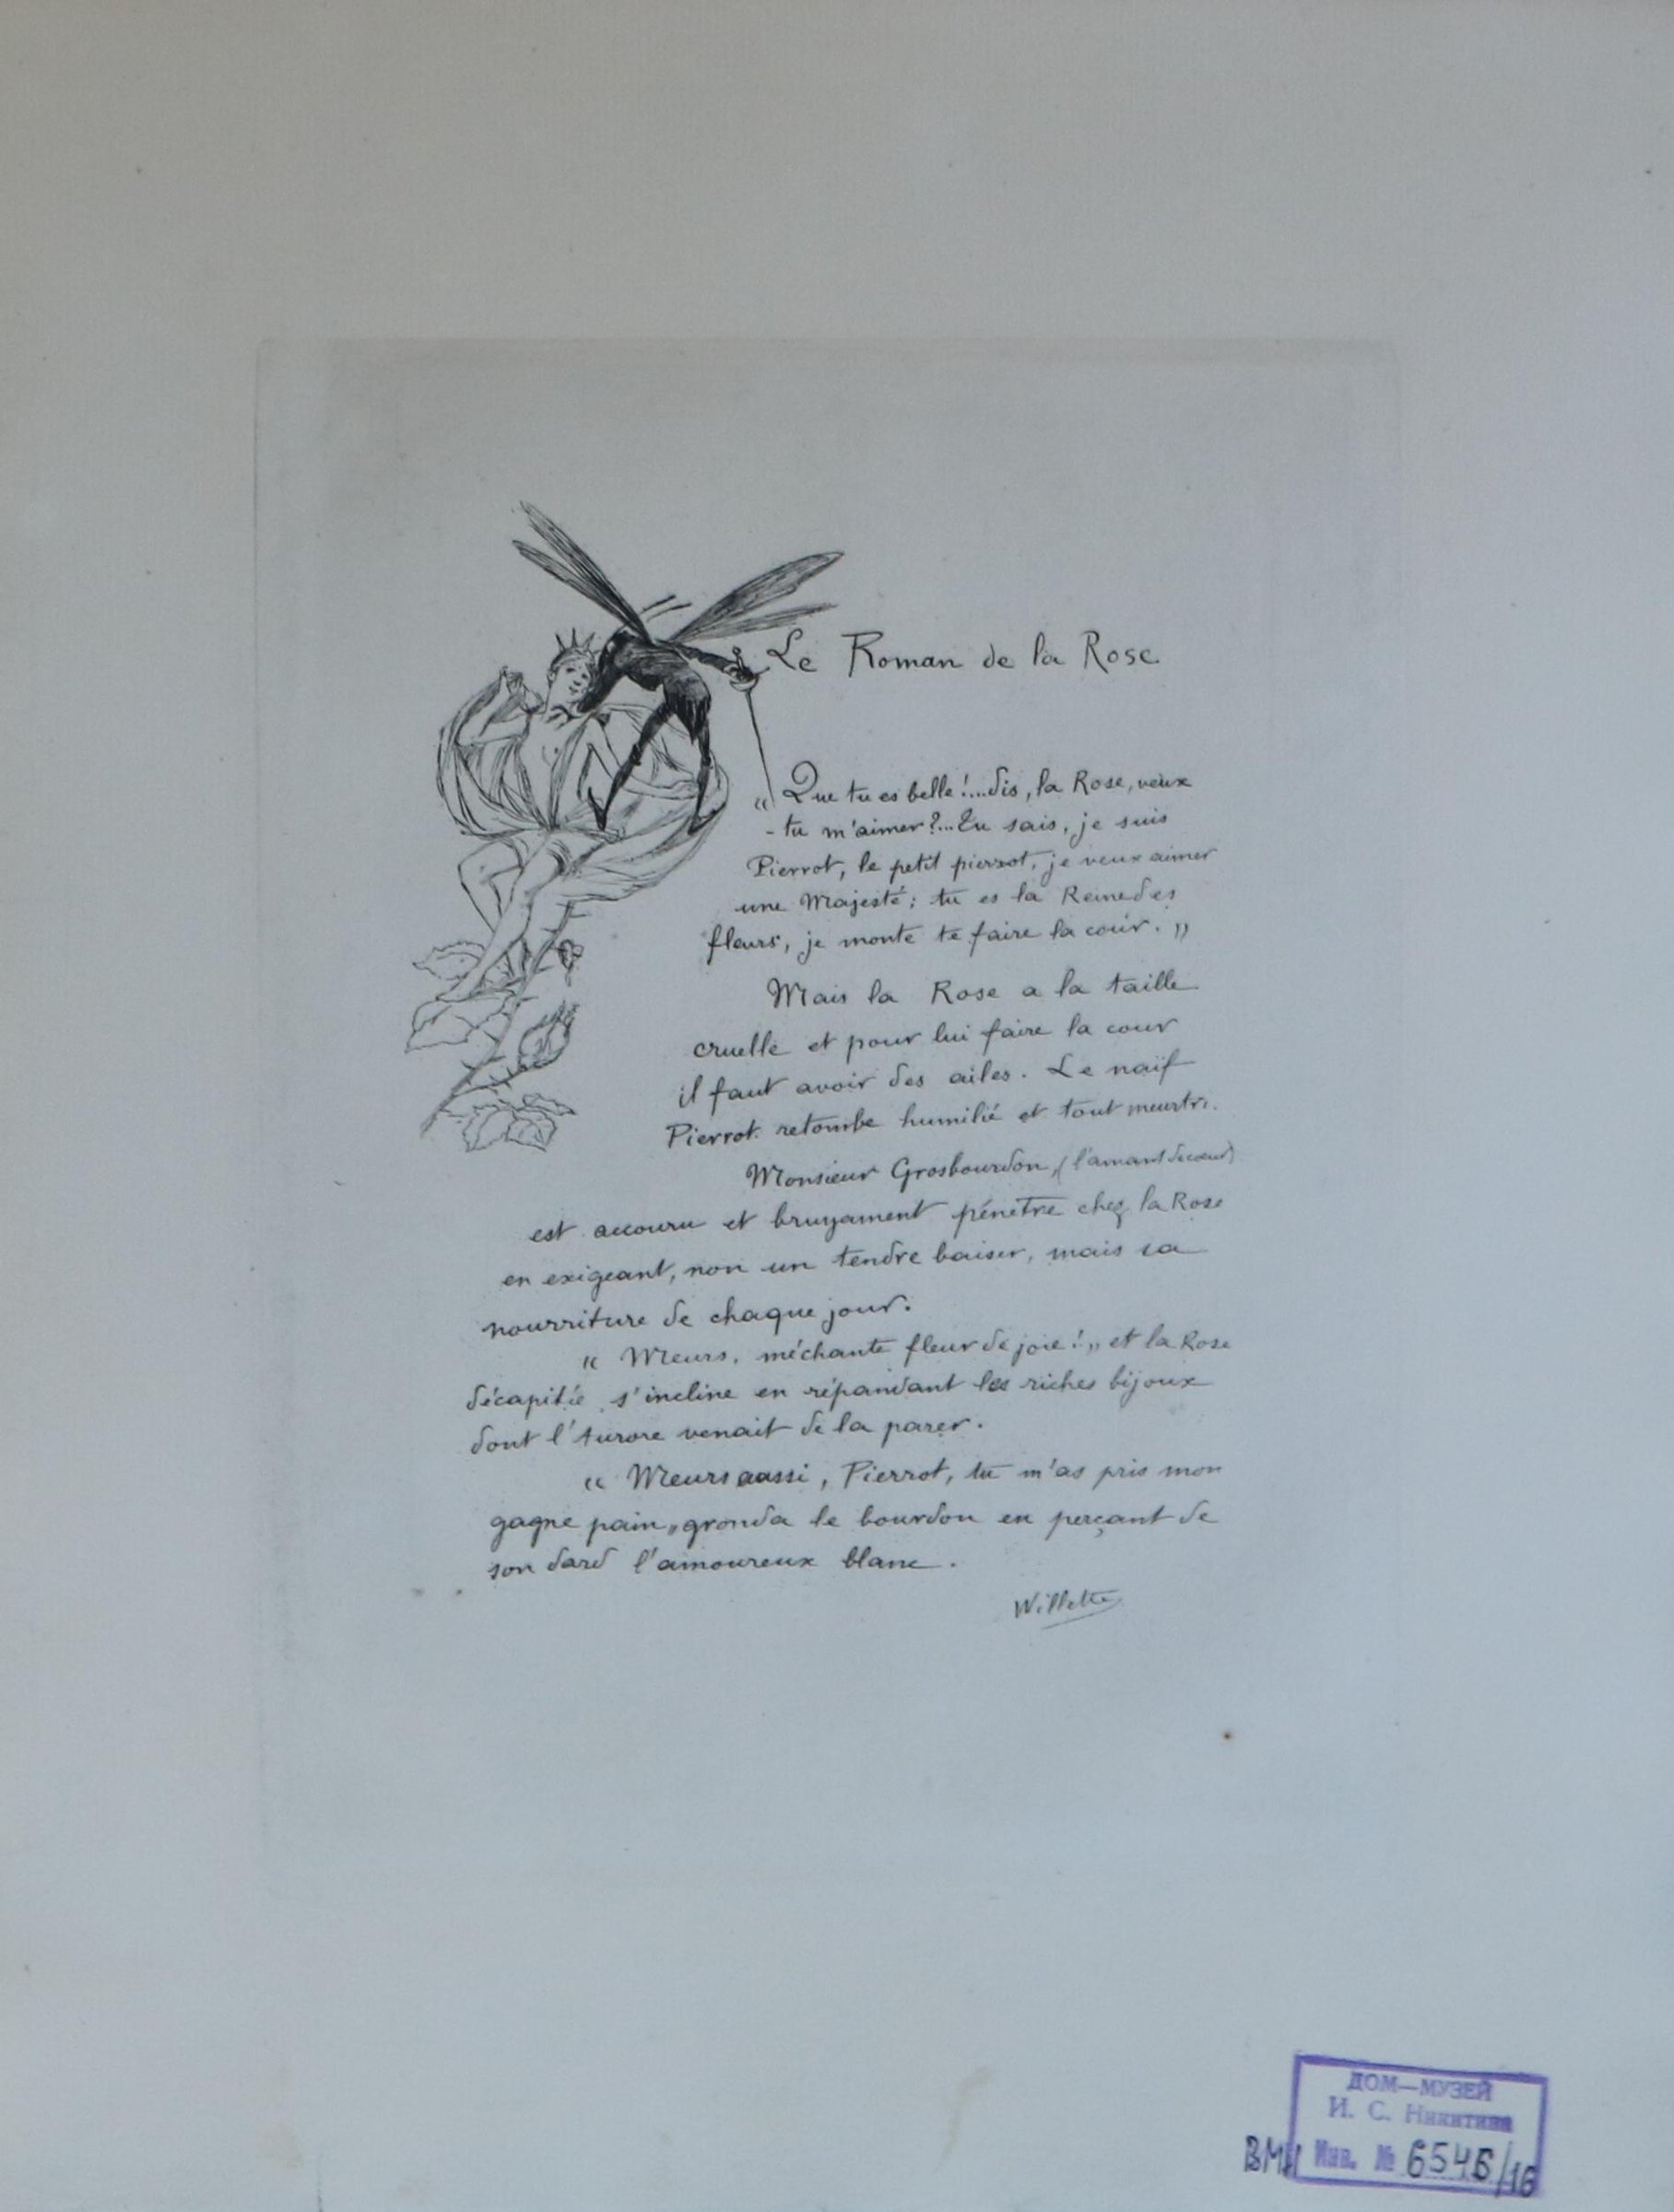 Le Roman de la Rose
« Que tu es belle !... dis, la Rose, veux
- tu m'aimer ?... Tu sais, je suis
Pierrot, le petit pierrot, je veux aimer
une Majesté ; tu es la Reine des
fleurs, je monte te faire la cour. »
Mais la Rose a la taille
cruelle et pour lui faire la cour
il faut avoir des ailes. Le naïf
Pierrot retombe humilié et tout meurtri.
Monsieur Grosbourdon, (l'amant de cœur)
est accouru et bruyament pénètre chez la Rose
en exigeant, non un tendre baiser, mais sa
nourriture de chaque jour.
« Meurs, méchante fleur de joie ! » et la Rose
décapitée s'incline en répandant les riches bijoux
dont l'Aurore venait de la parer.
« Meurs aussi, Pierrot, tu m'as pris mon
gagne pain » gronda le bourdon en perçant de
son dard l'amoureux blanc.
Willette
ДОМ—МУЗЕЙ
И. С. Никитина
ВМ Инв. № 6546/16